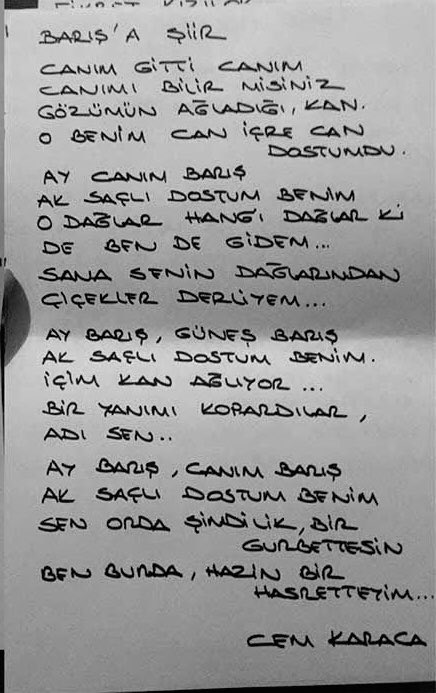 BARIŞ'A ŞİİR
CANIM GİTTİ CANIM
CANIMI BİLİR MİSİNİZ
GÖZÜMÜN AĞLADIĞI, KAN.
O BENİM CAN İÇRE CAN
DOSTUMDU.
AY CANIM BARIŞ
AK SAÇLI DOSTUM BENİM
O DAĞLAR HANGİ DAĞLAR Kİ
DE BEN DE GİDEM...
SANA SENİN DAĞLARINDAN
ÇİÇEKLER DERLİYEM...
AY BARIŞ, GÜNEŞ BARIŞ
AK SAÇLI DOSTUM BENİM.
İÇİM KAN AĞLIYOR ...
BİR YANIMI KOPARDILAR,
ADI SEN..
AY BARIŞ, CANIM BARIŞ
AK SAÇLI DOSTUM BENİM
SEN ORDA ŞİMDİLİK, BİR
GURBETTESİN
BEN BURDA, HAZİN BİR
HASRETTEYİM...
CEM KARACA